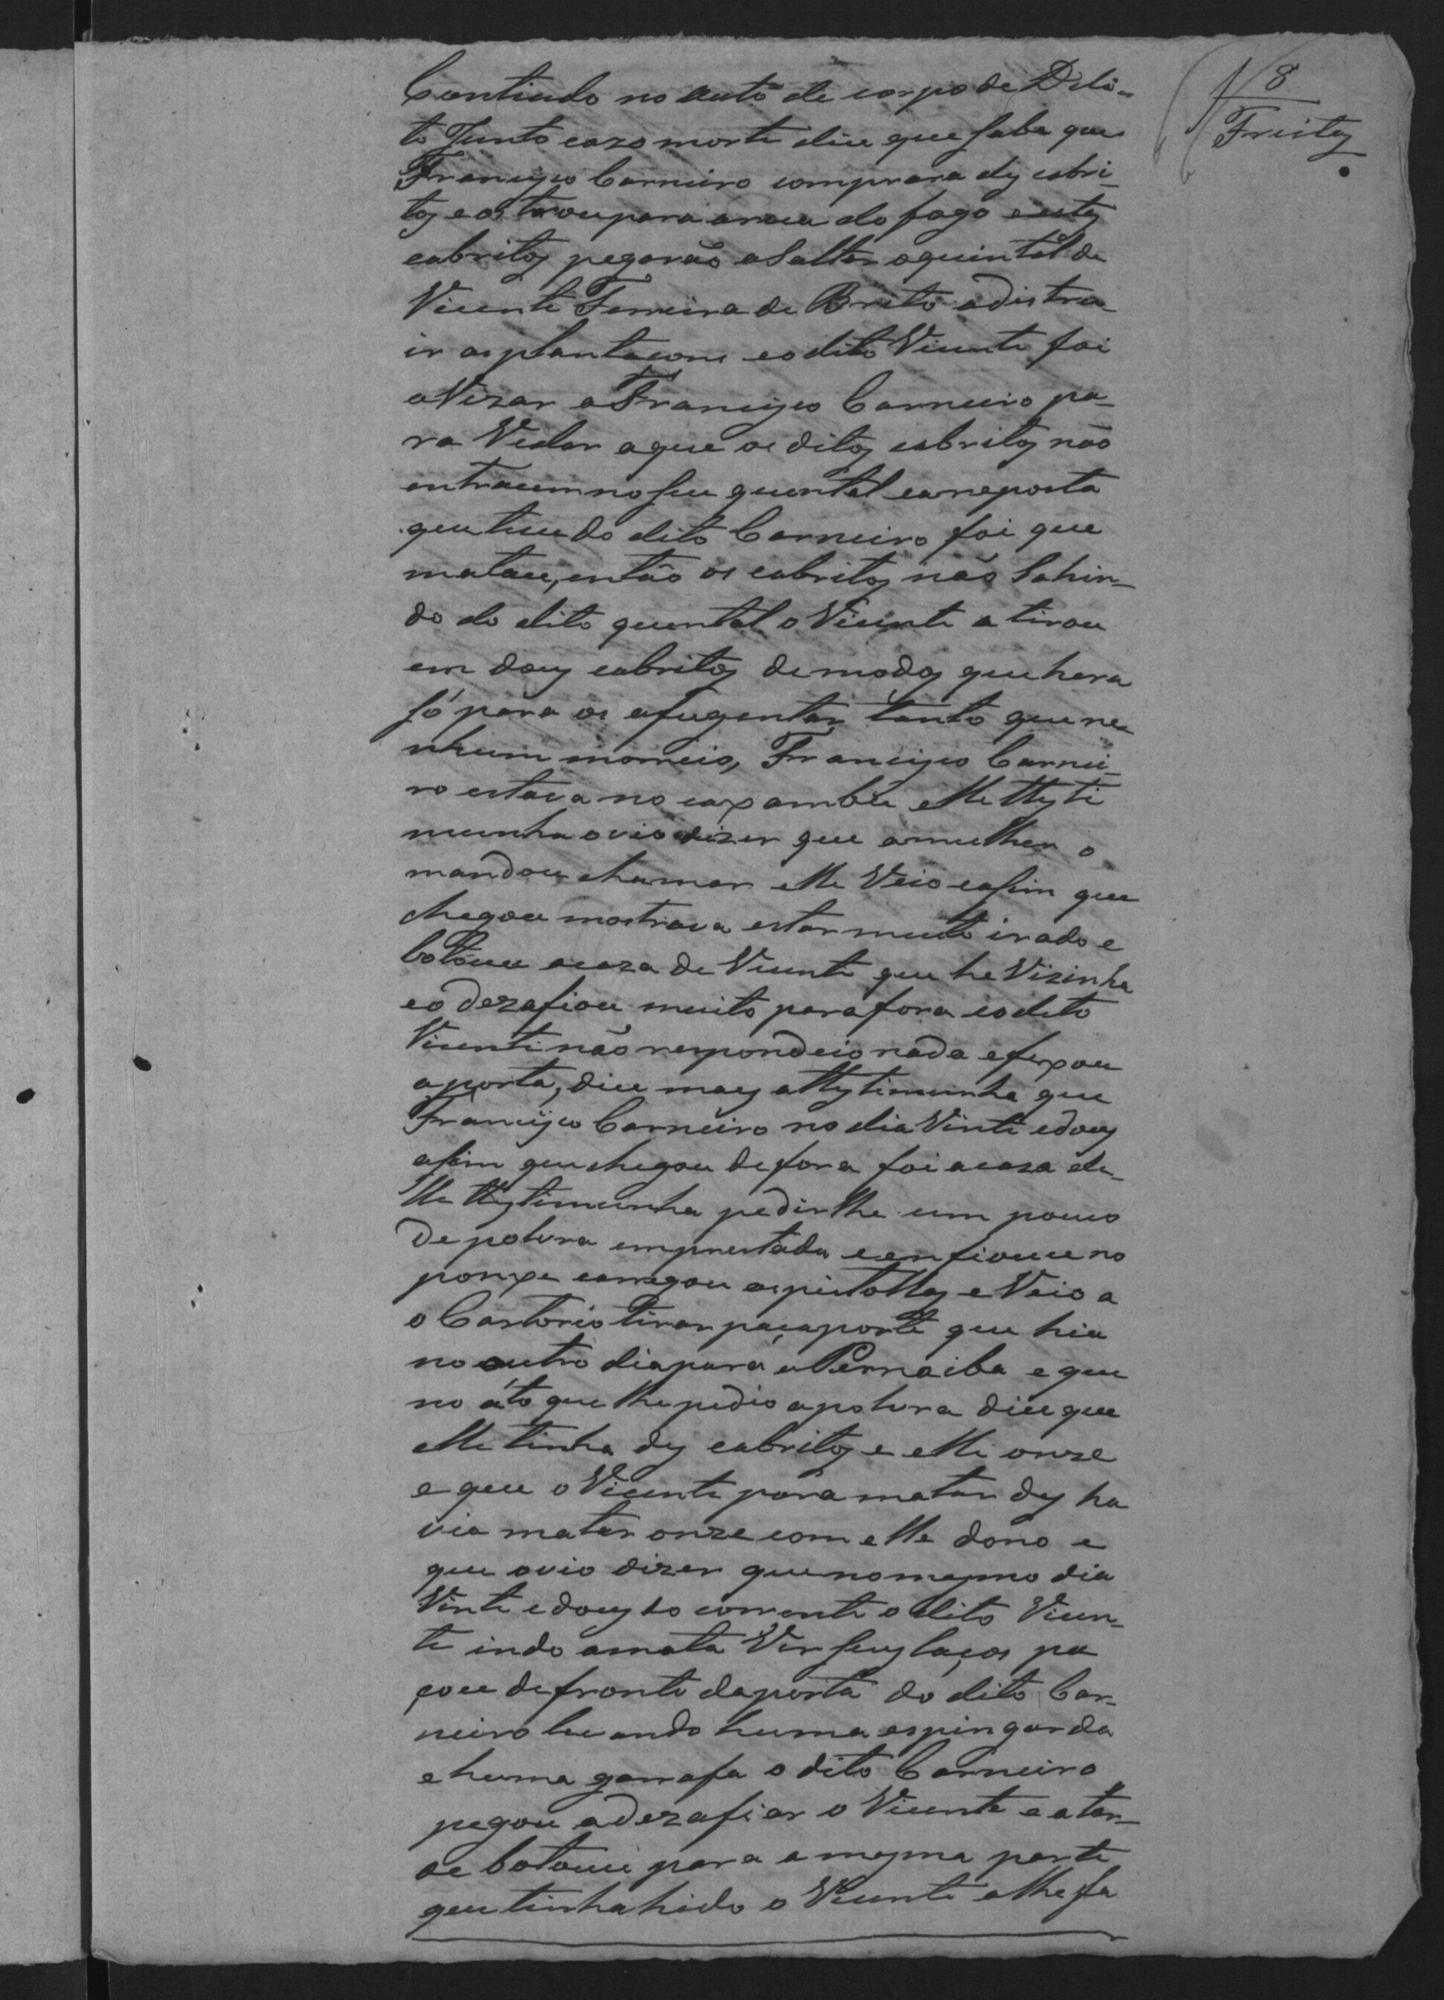 8
Freitas
Contiudo no auto de corpo de Deli-
to Junto cazo morte dice que sabe que
Francisco Carneiro comprara dez cabri-
tos e os para do fogo e estes
cabritos pegarão a Saltar o quintal de
Vicente Ferreira de Brito a distru-
ir as plantacons e o dito Vicente foi
aVizar a Francisco Carneiro pa-
ra Vedar a que os ditos cabritos não
entracem no seu quental e a reposta
que teve do dito Carneiro foi que
matace, então os cabritos não Sahin-
do do dito quental o Vicente atirou
em dous cabritos de modos que hera
só para os afugentar tanto que ne
nhum morreio, Francisco Carnei-
ro estava no caxambú elle Testi
munha ovio dizer que a mulher o
mandou chamar elle Veio e asim que
chegou mostrava estar muito irado e
botouce a caza de Vicente que he Vizinha
e o dezafiou muito para fora e o dito
Vicente não respondeio nada e fexou
a porta, dice mais a Testimunha que
Francisco Carneiro no dia Vinte e dous
asim que chegou de fora foi a caza de-
lle Testimunha pedirlhe um pouco
de polvra emprestada e enfiouce no
ponxe carregou as pistollas e Veio a
o Cartorio tirar paçaporte que hia
no outro dia para a Pernaiba e que
no áto que lhe pedio a polvra dice que
elle tinha dez cabritos e elle onze
e que o Vicente para matar dez ha
via matar onze com elle dono e
que ovio dizer que no mesmo dia
Vinte e dous do corrente o dito Vicen-
te indo a mata Ver seus laços pa
çou defronte da porta do dito Car-
neiro levando huma espingarda
e huma garrafa o dito Carneiro
pegou a dezafiar o Vicente e a tar-
de botouce para a mesma parte
que tinha hido o Vicente a lhe fa